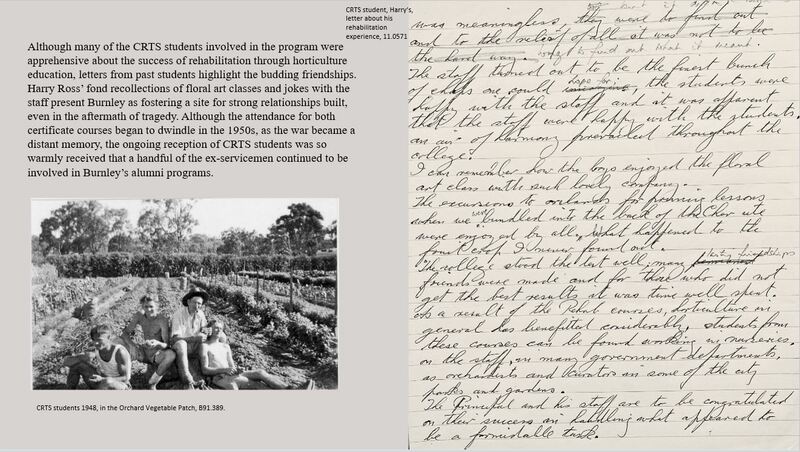 Although many of the CRTS students involved in the program were
apprehensive about the success of rehabilitation through horticulture
education, letters from past students highlight the budding friendships.
Harry Ross' fond recollections of floral art classes and jokes with the
staff present Burnley as fostering a site for strong relationships built,
even in the aftermath of tragedy. Although the attendance for both
certificate courses began to dwindle in the 1950s, as the war became a
distant memory, the ongoing reception of CRTS students was so
warmly received that a handful of the ex-servicemen continued to be
involved in Burnley's alumni programs.
CRTS students 1948, in the Orchard Vegetable Patch, B91.389.
CRTS student, Harry's,
letter about his
rehabilitation
experience, 11.0571
was meaningless, they were to find out
and to the relief of all it was not to be
the hard way. to find out what it meant.
The staff turned out to be the finest bunch
of chaps one could hope for, the students were
happy with the staff and it was apparent
that the staff were happy with the students,
an air of harmony prevailed throughout the
college.
I can remember how the boys enjoyed the floral
art class with such lovely company.
The excursions to orchards for pruning lessons
when we were bundled into the back of the Chev ute
were enjoyed by all, what happened to the
fruit crop I never found out.
The college stood the test well, many lasting friendships
friends were made and for those who did not
get the best results it was time well spent.
As a result of the Rehab courses, horticulture in
general has benefitted considerably, students from
these courses can be found working in nurseries.
on the staff, in many government departments.
as orchardists and curators in some of the city
parks and gardens.
The Principal and his staff are to be congratulated
on their success in handling what appeared to
be a formidable task.